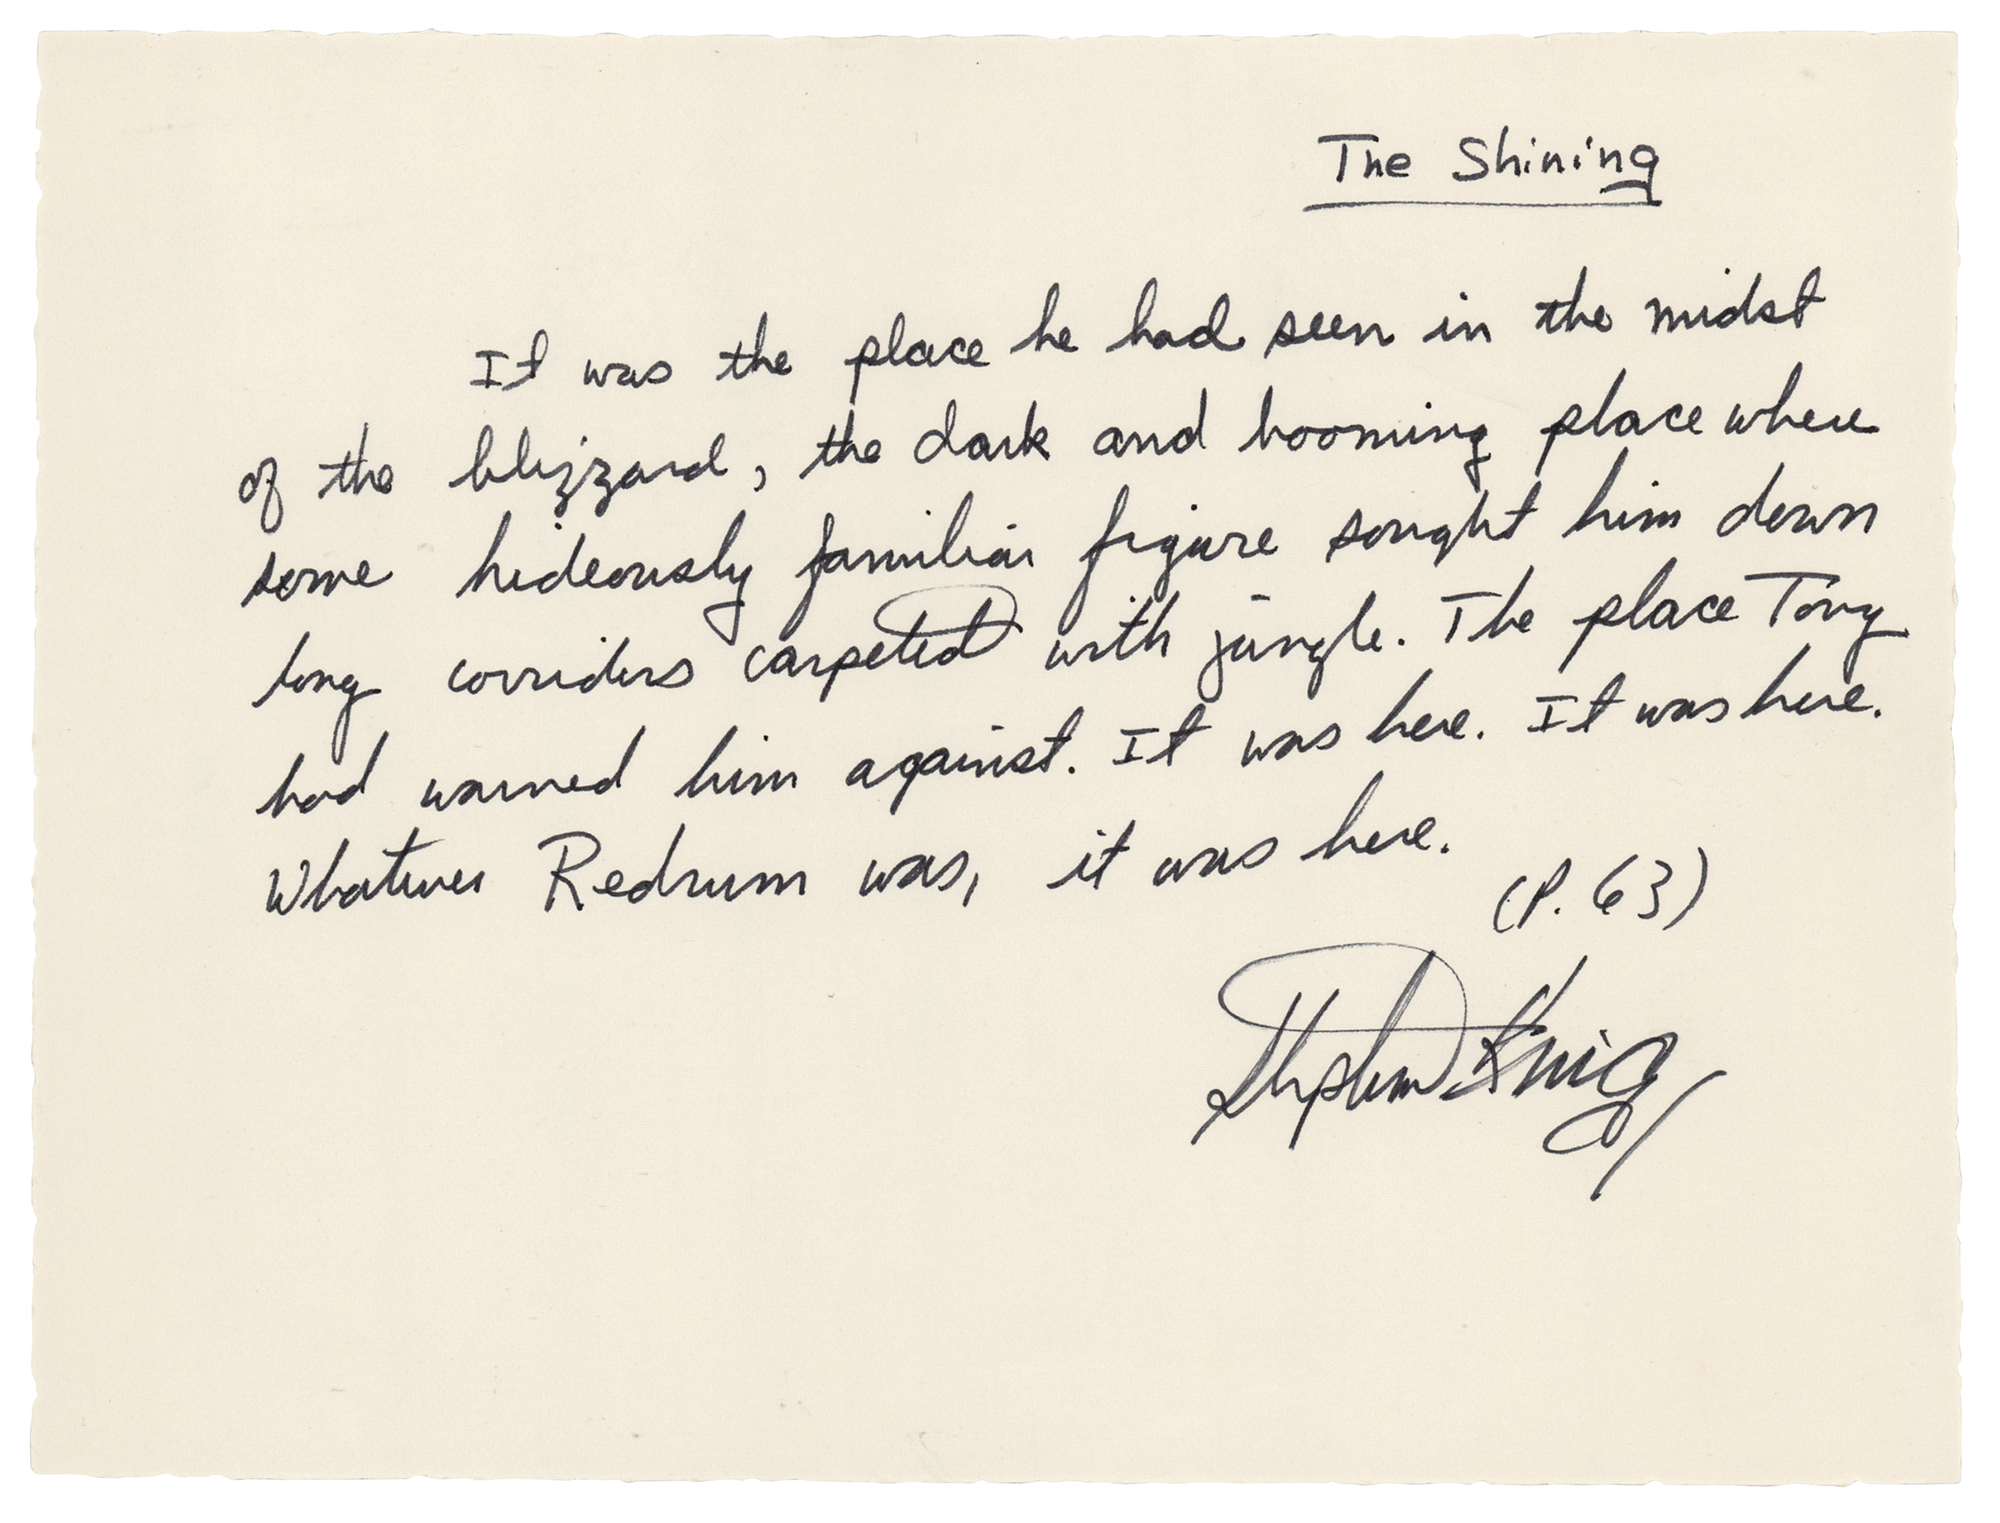 The Shining
It was the place he had seen in the midst
of the blizzard, the dark and booming place where
some hideously familiar figure sought him down
long corridors carpeted with jungle. The place Tony
had warned him against. It was here. It was here.
Whatever Redrum was, it was here.
(P. 63)
Stephen King